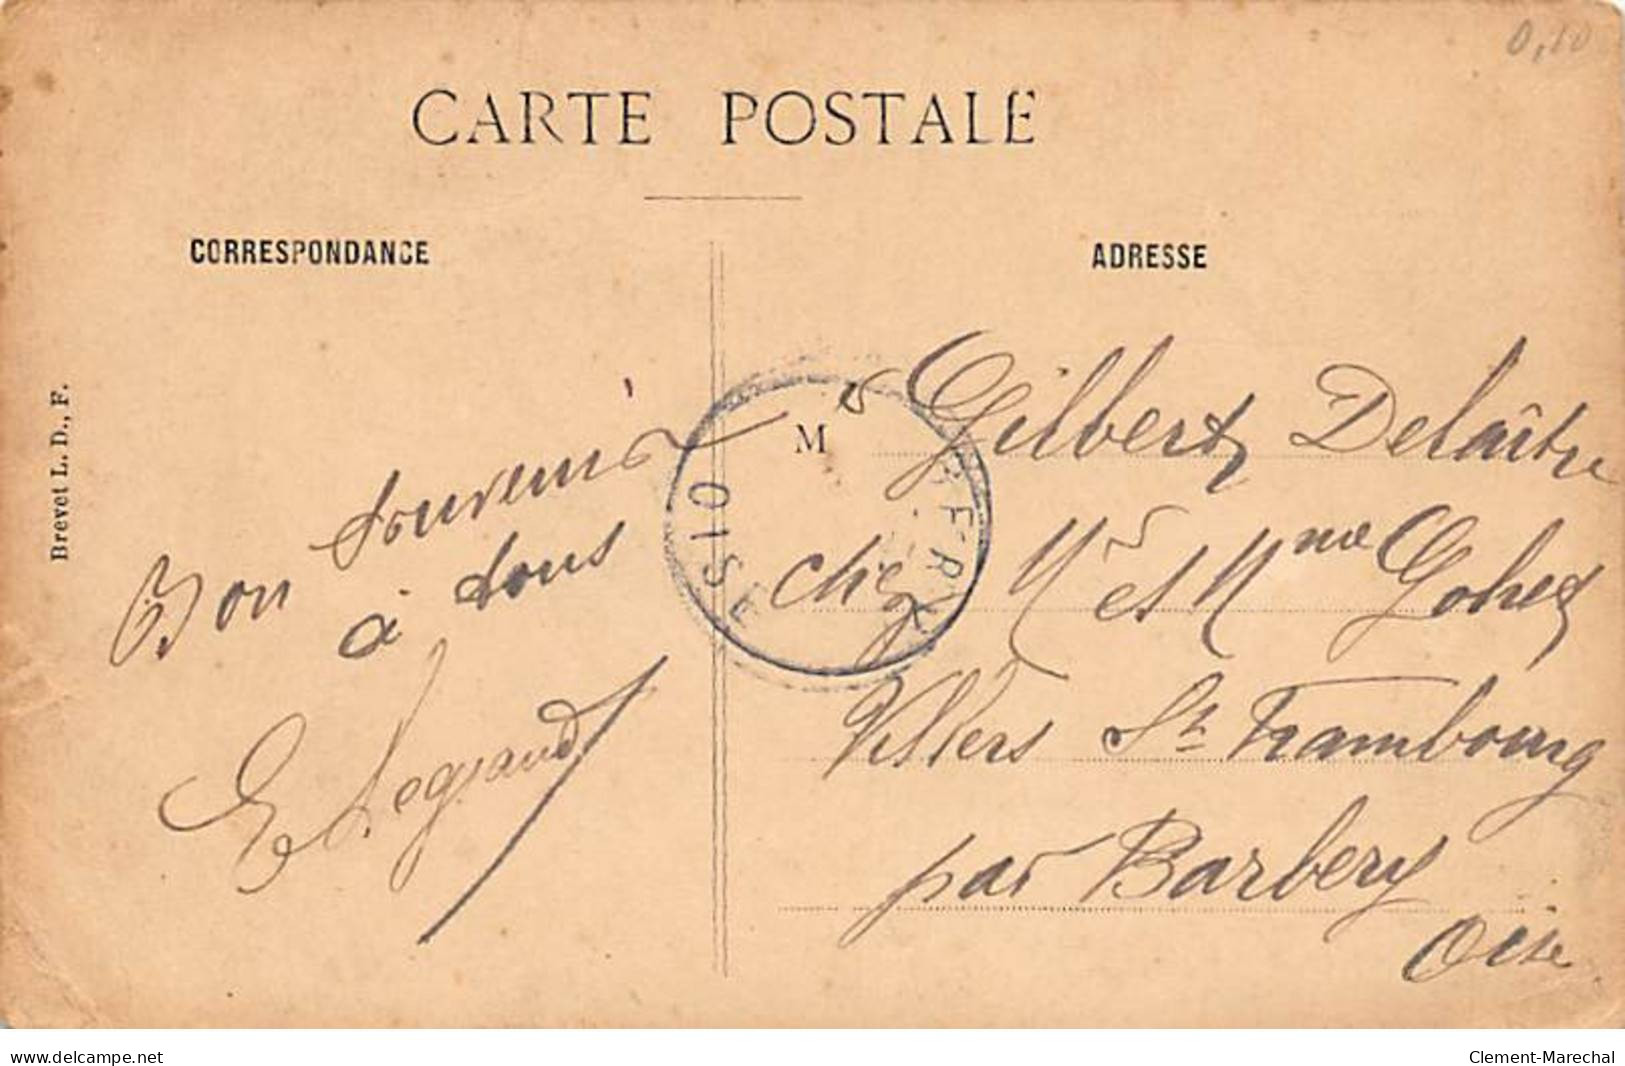 0,10
CARTE POSTALE
CORRESPONDANCE
ADRESSE
Brevet L. D., F.
Bon souvenir
à tous
E Legrand
Mr Gilbert Delaître
chez Mr et Mme Gohet
Villers St Frambourg
par Barbery
Oise
OISE
www.delcampe.net
Clement-Marechal